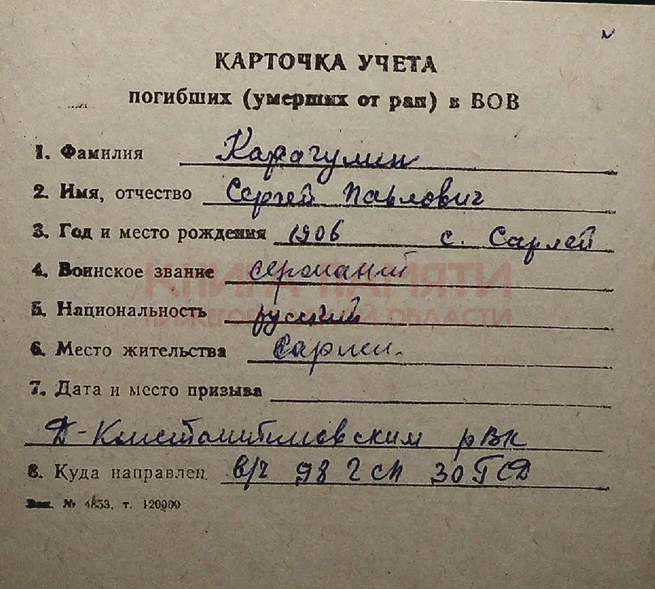 КАРТОЧКА УЧЕТА
погибших (умерших от ран) в ВОВ
1. Фамилия Карагулин
2. Имя, отчество Сергей Павлович
3. Год и место рождения 1906 с. Сарлей
4. Воинское звание сержант
КНИГА ПАМЯТИ
5. Национальность русский
НИЖЕГОРОДСКОЙ ОБЛАСТИ
6. Место жительства Сарлеи.
7. Дата и место призыва
Д-Константиновским рвк
8. Куда направлен в/ч 98 гсп 30 ГСД
Зак. № 4853, т. 120000